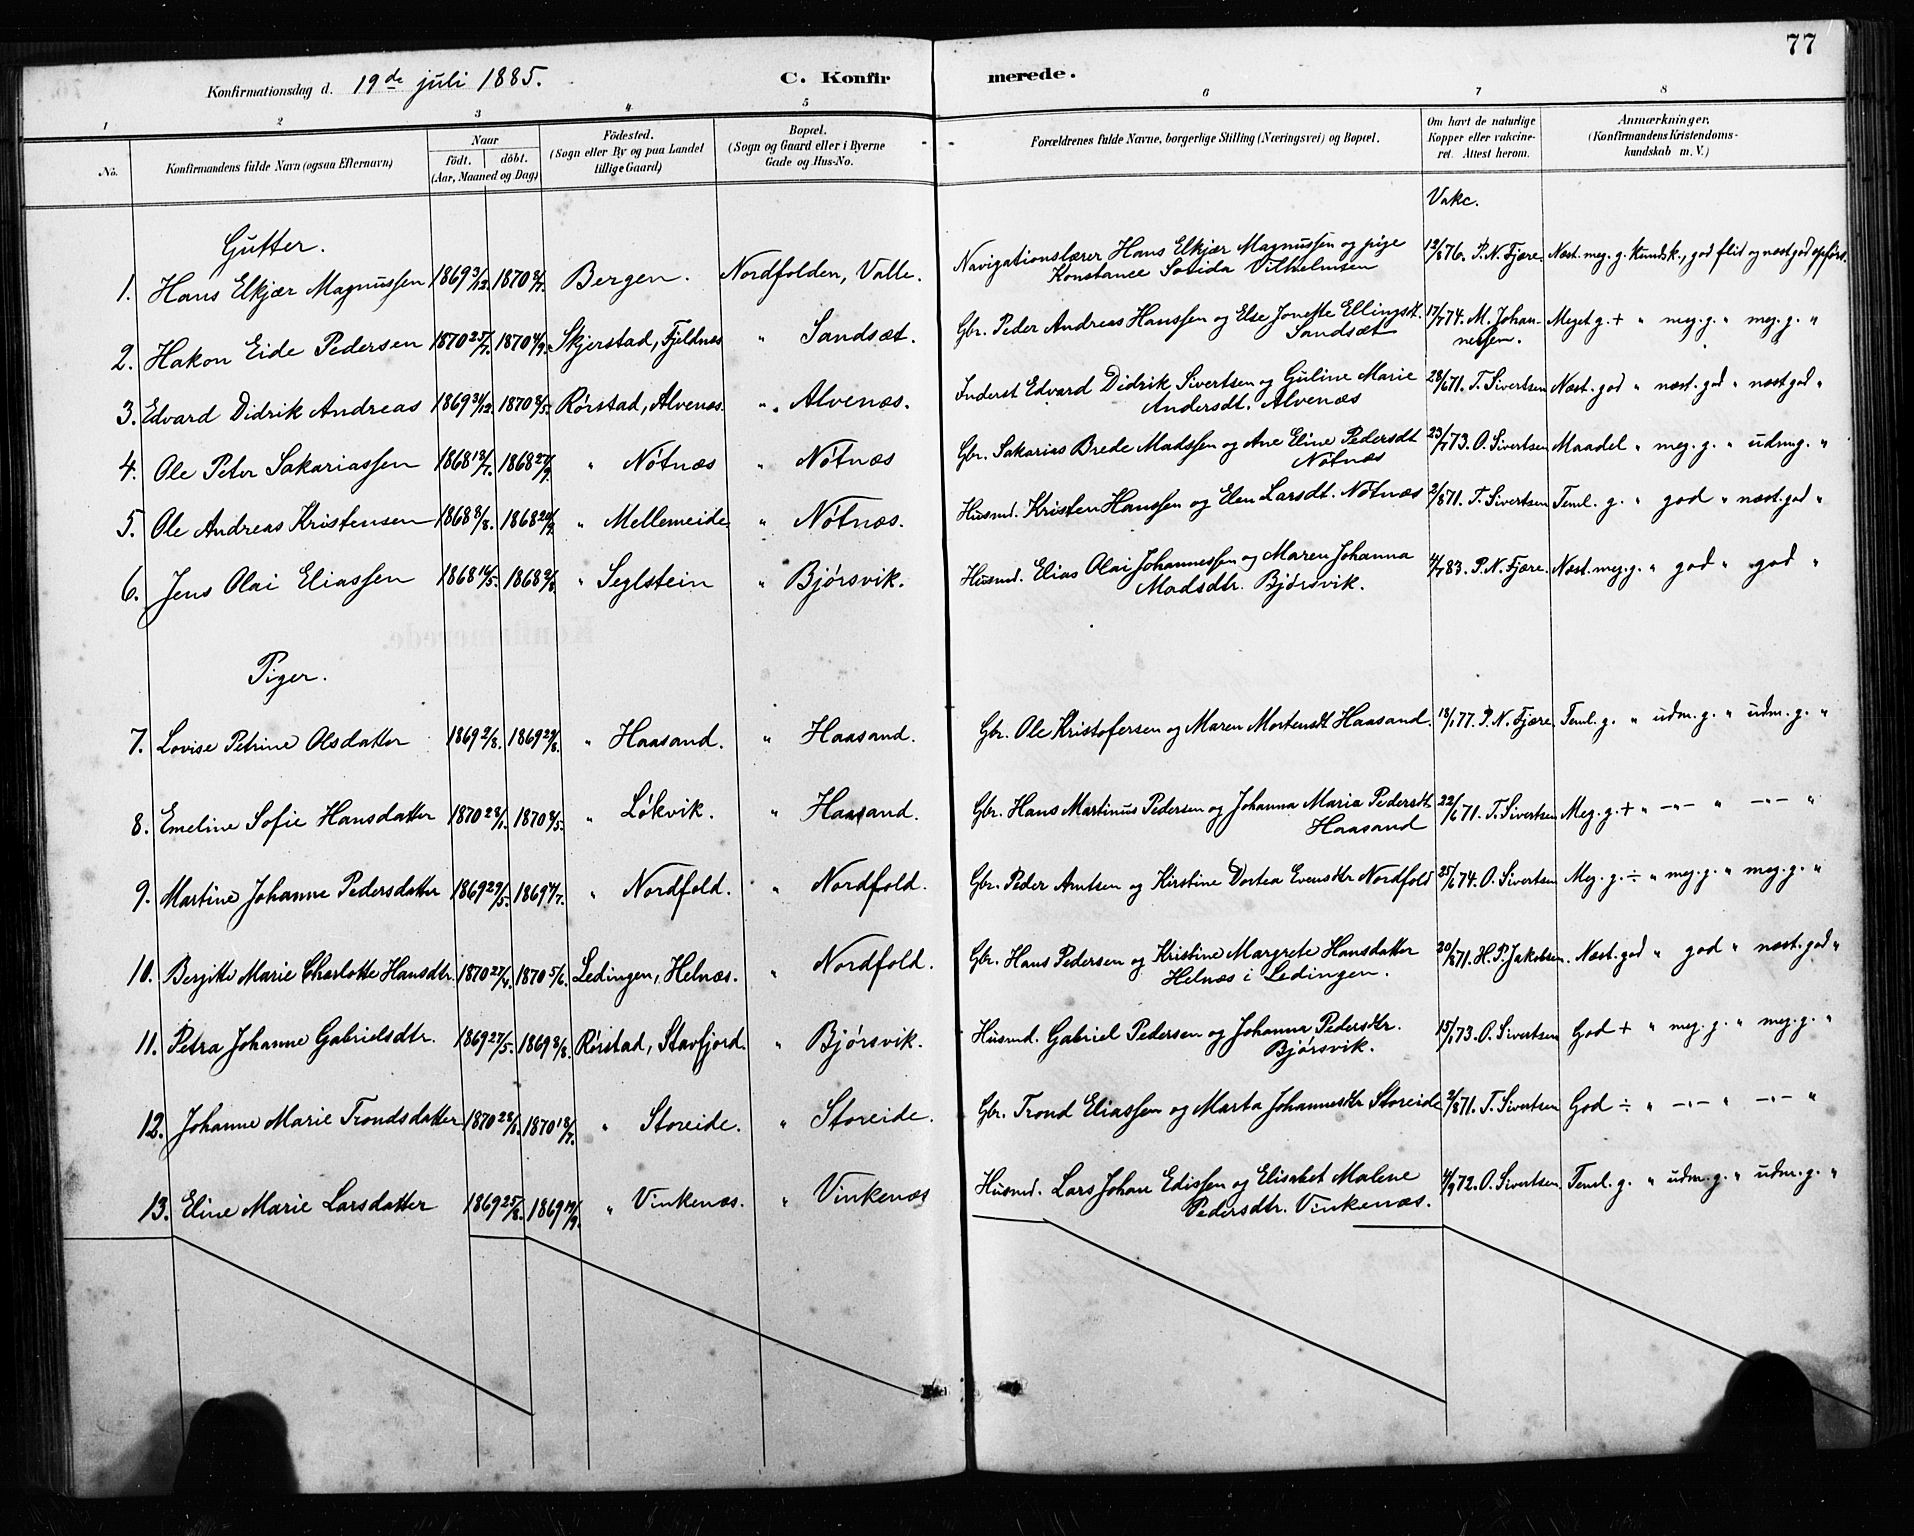 77
Konfirmationsdag d. 19de juli 1885. C. Konfirmerede.
1 2 3 4 5 6 7 8
No. Konfirmandens fulde Navn (ogsaa Efternavn) Naar født. døbt. (Aar, Maaned og Dag) Födested. (Sogn eller By og paa Landet tillige Gaard) Bopæl. (Sogn og Gaard eller i Byerne Gade og Hus-No. Forældrenes fulde Navne, borgerlige Stilling (Næringsvei) og Bopæl. Om havt de naturlige Kopper eller vakcineret. Attest herom. Anmærkninger. (Konfirmandens Kristendomskundskab m. V.)
Vakc.
Gutter.
1. Hans Elkjær Magnussen 1869 3/12. 1870 Bergen. Nordfolden, Valle. Navigationslærer Hans Elkjær Magnussen og pige 12/8 76. P. N. Fjære. Næst. meg. g. kundsk., god flid og næst god opførs.
Konstance Vilhelmsen
2. Hakon Eide Pedersen 1870 1870 4/9. Skjerstad, Fjeldnes " Sandsæt. Gbr. Peder Andreas Hanssen og Else Jonette Ellingsdt. 17/7 74. M. Johan- Meget g. + " meg. g. " meg. g. "
Sandsæt nessen.
3. Edvard Didrik Andreas 1869 1870 Rørstad, Alvenæs. " Alvenæs. Inderst Edvard Didrik Sivertsen og Guline Marie 28/6 71. T. Sivertsen Næst. god " næst. god " næst god "
Andersdt. Alvenæs
4. Ole Peter Sakariassen 1868 18/7. 1868 27/9. " Nótnæs " Nótnæs Gbr. Sakarias Brede Madssen og Ane Eline Pedersdt 23/7 73. O. Sivertsen Maadel " meg. g. " udm. g. "
Nótnæs
5. Ole Andreas Kristensen 1868 1868 " Mellemeide " Nótnæs. Husmd. Kristen Hanssen og Elen Larsdt. Nótnæs 2/8 71. T. Sivertsen Teml. g. " god " næst. god "
6. Jens Olai Eliassen 1868 1868 " Seglstein " Bjórsvik. Husmd. Elias Olai Johannessen og Maren Johanna 4/7 83. P. N. Fjære. Næst. meg. g. " god " god "
Madsdtr. Bjórsvik.
Piger.
7. Lovise Petrine Olsdatter 1869 2/8. 1869 " Haasand. " Haasand. Gbr. Ole Kristofersen og Maren Mortensdt Haasand. 18/1 77. P. N. Fjære Teml. g. " udm. g. " udm. g. "
8. Emeline Sofie Hansdatter 1870 1870 " Lókvik. " Haasand. Gbr. Hans Martinus Pedersen og Johanna Maria Pedersdt. 22/6 71. T. Sivertsen Meg. g. + " –„– " –„– "
Haasand
9. Martine Johanne Pedersdatter 1869 29/5. 1869 " Nordfold. " Nordfold. Gbr. Peder Arntsen og Kirstine Dortea Evensdtr Nordfold 25/6 74. O. Sivertsen Meg. g. ÷ " meg. g. " meg. g. "
10. Berjitte Marie Charlotte Hansdtr. 1870 27/4. 1870 5/6. Ledingen, Helnæs. " Nordfold. Gbr. Hans Pedersen og Kristine Margrete Hansdatter 20/8 71. H. P. Jakobsen. Næst. god " god " næst. god "
Helnæs i Ledingen.
11. Petra Johanne Gabrielsdtr. 1869 27/5. 1869 Rórstad, Stavfjord. " Bjórsvik. Husmd. Gabriel Pedersen og Johanna Pedersdtr. 15/1 73. O. Sivertsen God + " meg. g. " meg. g. "
Bjórsvik.
12. Johanne Marie Trondsdatter 1870 1870 18/7. " Storeide. " Storeide. Gbr. Trond Eliassen og Marta Johannesdtr Storeide 2/8 71. T. Sivertsen God ÷ " –„– " –„– "
13. Eline Marie Larsdatter 1869 25/8. 1869 19/9. " Vinkenæs. " Vinkenæs Husmd. Lars Johan Edissen og Elisabet Malene 4/9 72. O. Sivertsen. Teml. g. " udm. g. " udm. g. "
Pedersdtr. Vinkenæs.